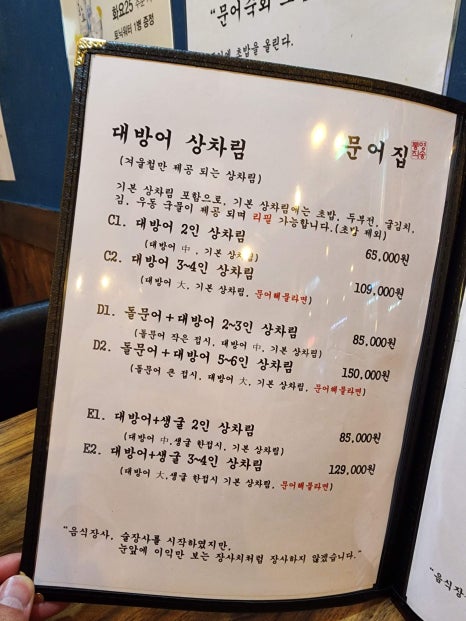 화요25
토닉워터 1병 증정
"문어숙회
초밥을 올린다.
대방어 상차림
문어집
(겨울철만 제공 되는 상차림)
기본 상차림 포함으로, 기본 상차림에는 초밥, 두부전, 굴김치,
김, 우동 국물이 제공 되며 리필 가능합니다.(초밥 제외)
C1. 대방어 2인 상차림 65,000원
(대방어 中, 기본 상차림)
C2. 대방어 3~4인 상차림 109,000원
(대방어 大, 기본 상차림, 문어해물라면)
D1. 돌문어+대방어 2~3인 상차림 85,000원
(돌문어 작은 접시, 대방어 中, 기본 상차림)
D2. 돌문어+대방어 5~6인 상차림 150,000원
(돌문어 큰 접시, 대방어 大, 기본 상차림, 문어해물라면)
E1. 대방어+생굴 2인 상차림 85,000원
(대방어 中,생굴 한접시, 기본 상차림)
E2. 대방어+생굴 3~4인 상차림 129,000원
(대방어 大,생굴 한접시 기본 상차림, 문어해물라면)
"음식장사, 술장사를 시작하였지만,
눈앞에 이익만 보는 장사치처럼 장사하지 않겠습니다."
"음식장사